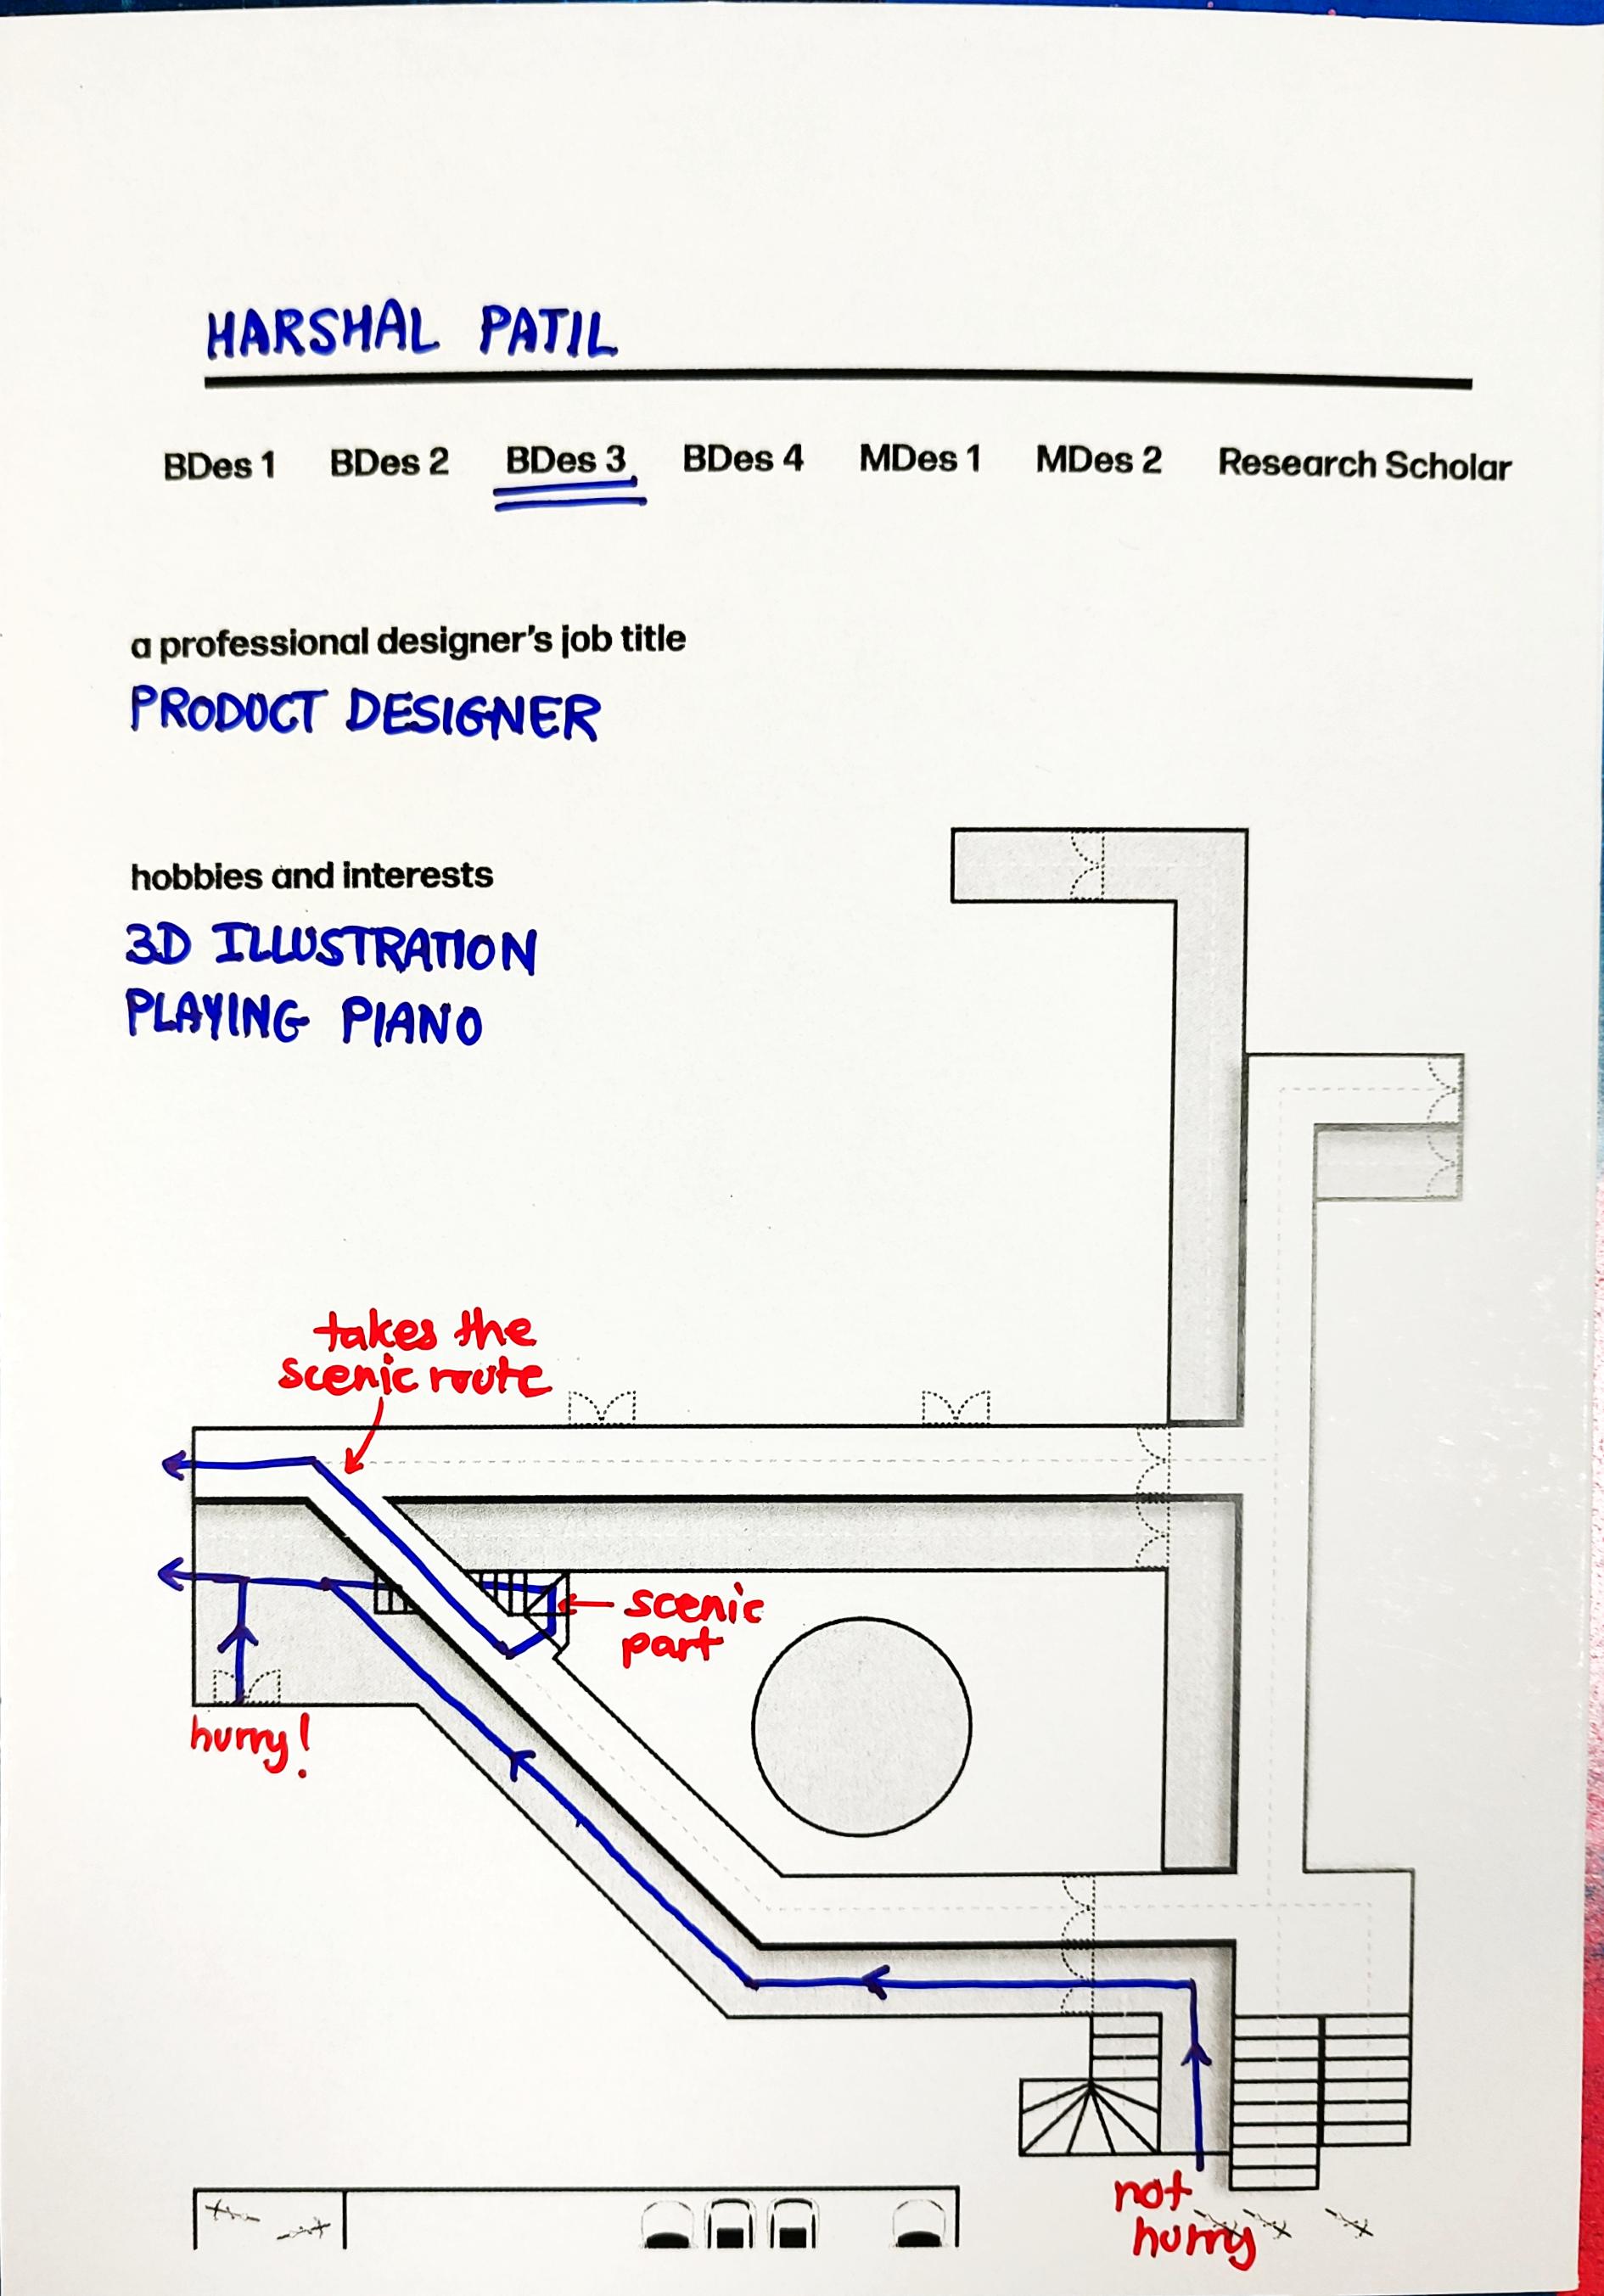 HARSHAL PATIL
BDes 1 BDes 2 BDes 3 BDes 4 MDes 1 MDes 2 Research Scholar
a professional designer's job title
PRODUCT DESIGNER
hobbies and interests
3D ILLUSTRATION
PLAYING PIANO
takes the
scenic route
scenic
part
hurry!
not
hurry